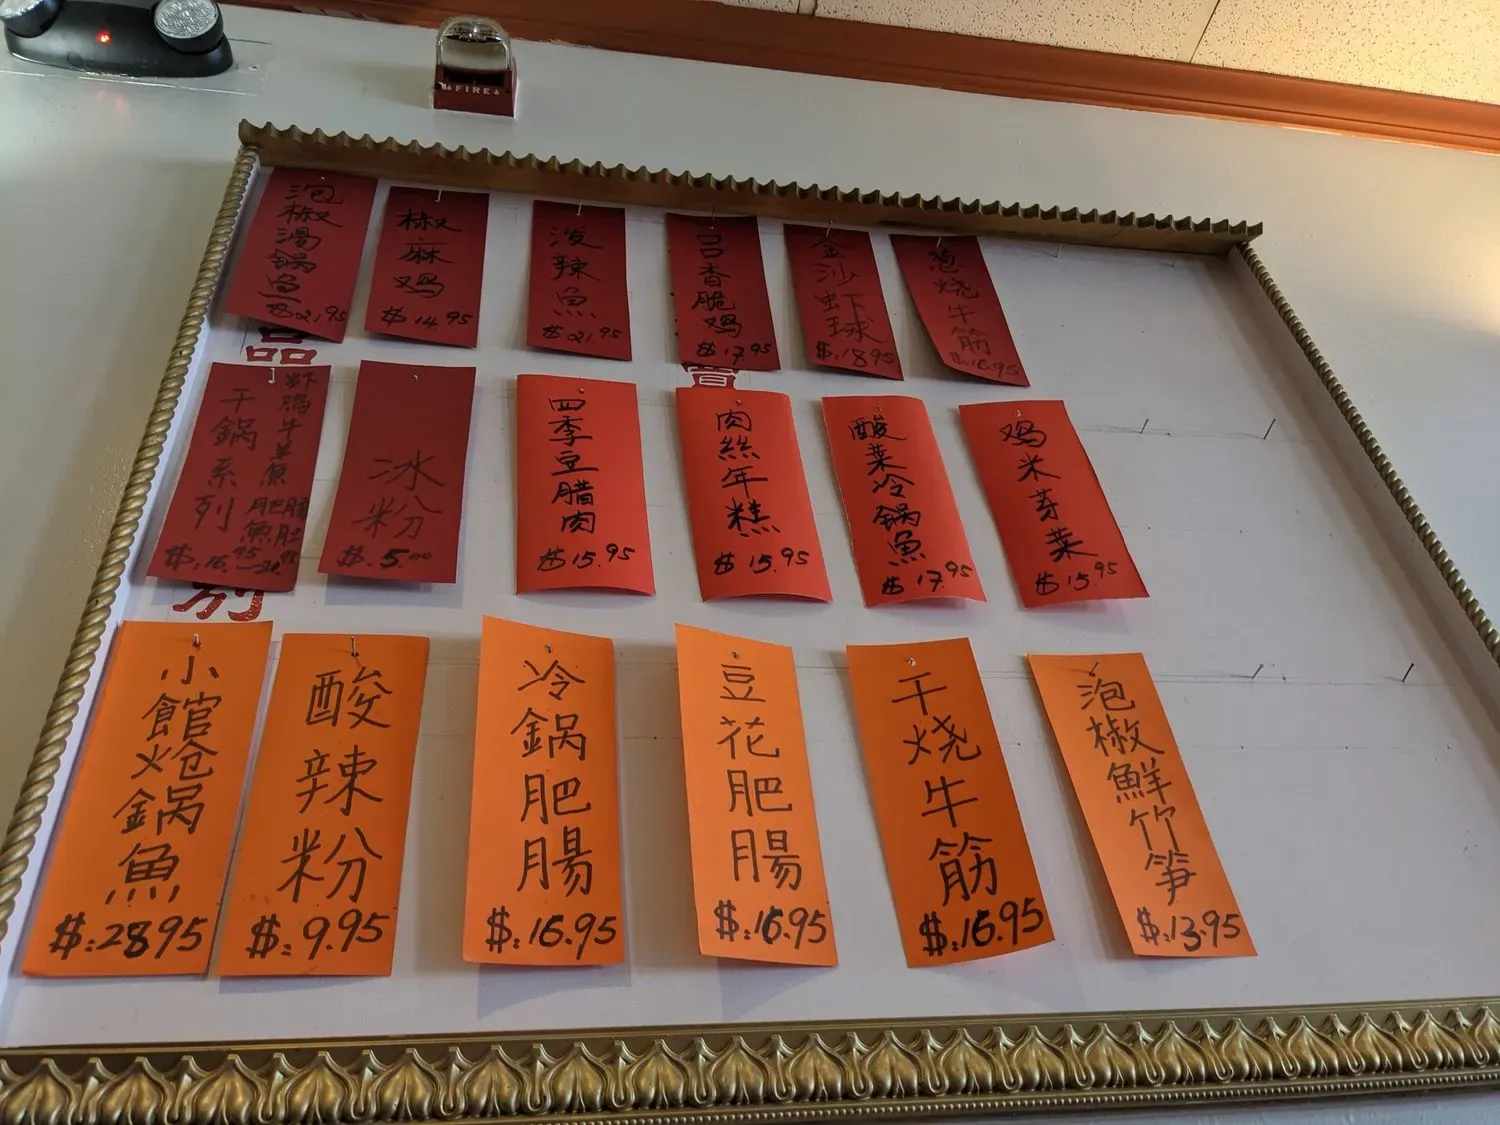 FIRE
泡椒湯鍋魚
$21.95
椒麻鸡
$14.95
泼辣魚
$21.95
口口香脆鸡
$17.95
金沙虾球
$.18.95
葱烧牛筋
$.16.95
品
干鍋系列
虾鸡牛羊魚
肥腸
魚肚
$.16.95
冰粉
$.5.00
四季豆腊肉
$15.95
肉絲年糕
$15.95
酸菜冷鍋魚
$17.95
鸡米芽菜
$15.95
別
小館炝鍋魚
$.28.95
酸辣粉
$.9.95
冷鍋肥腸
$.16.95
豆花肥腸
$.16.95
干烧牛筋
$.16.95
泡椒鮮竹笋
$.13.95